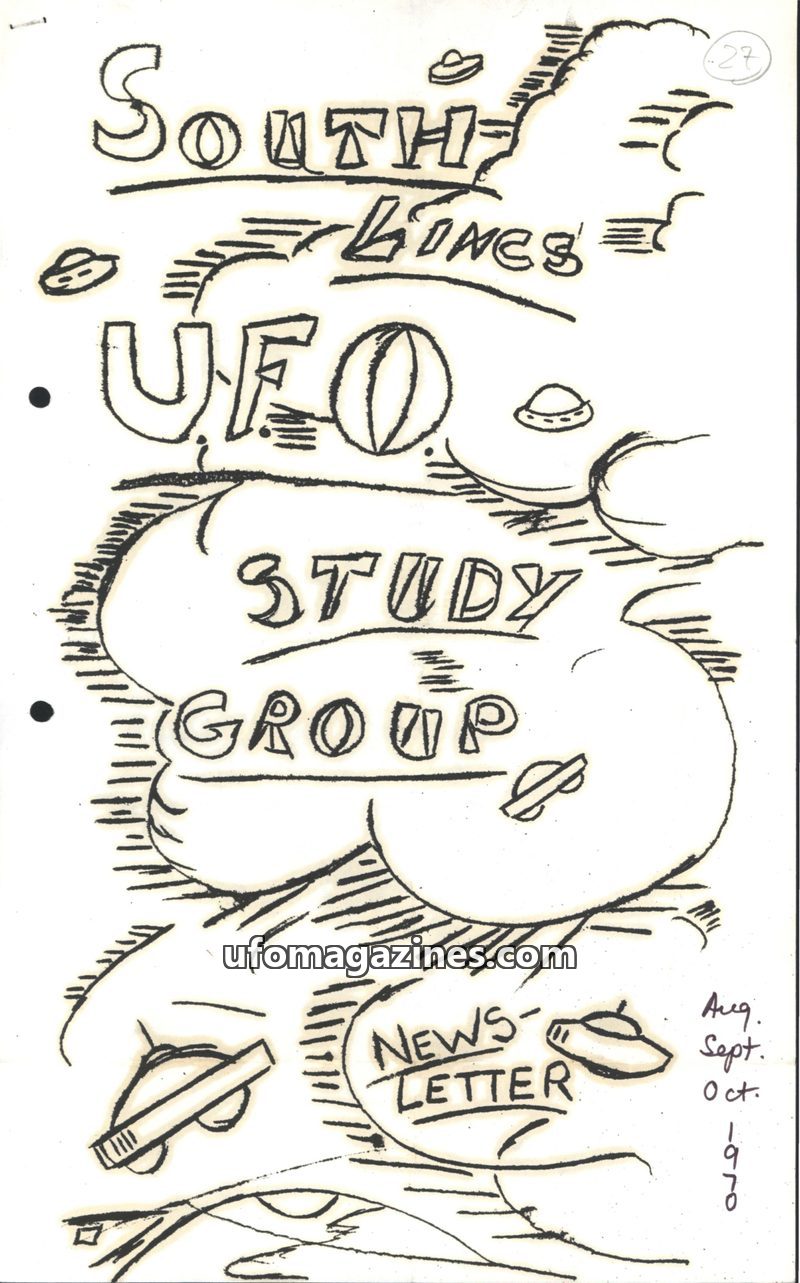 27
South
Lincs
U.F.O.
STUDY
GROUP
ufomagazines.com
NEWS-
LETTER
Aug.
Sept.
Oct.
1
9
7
0